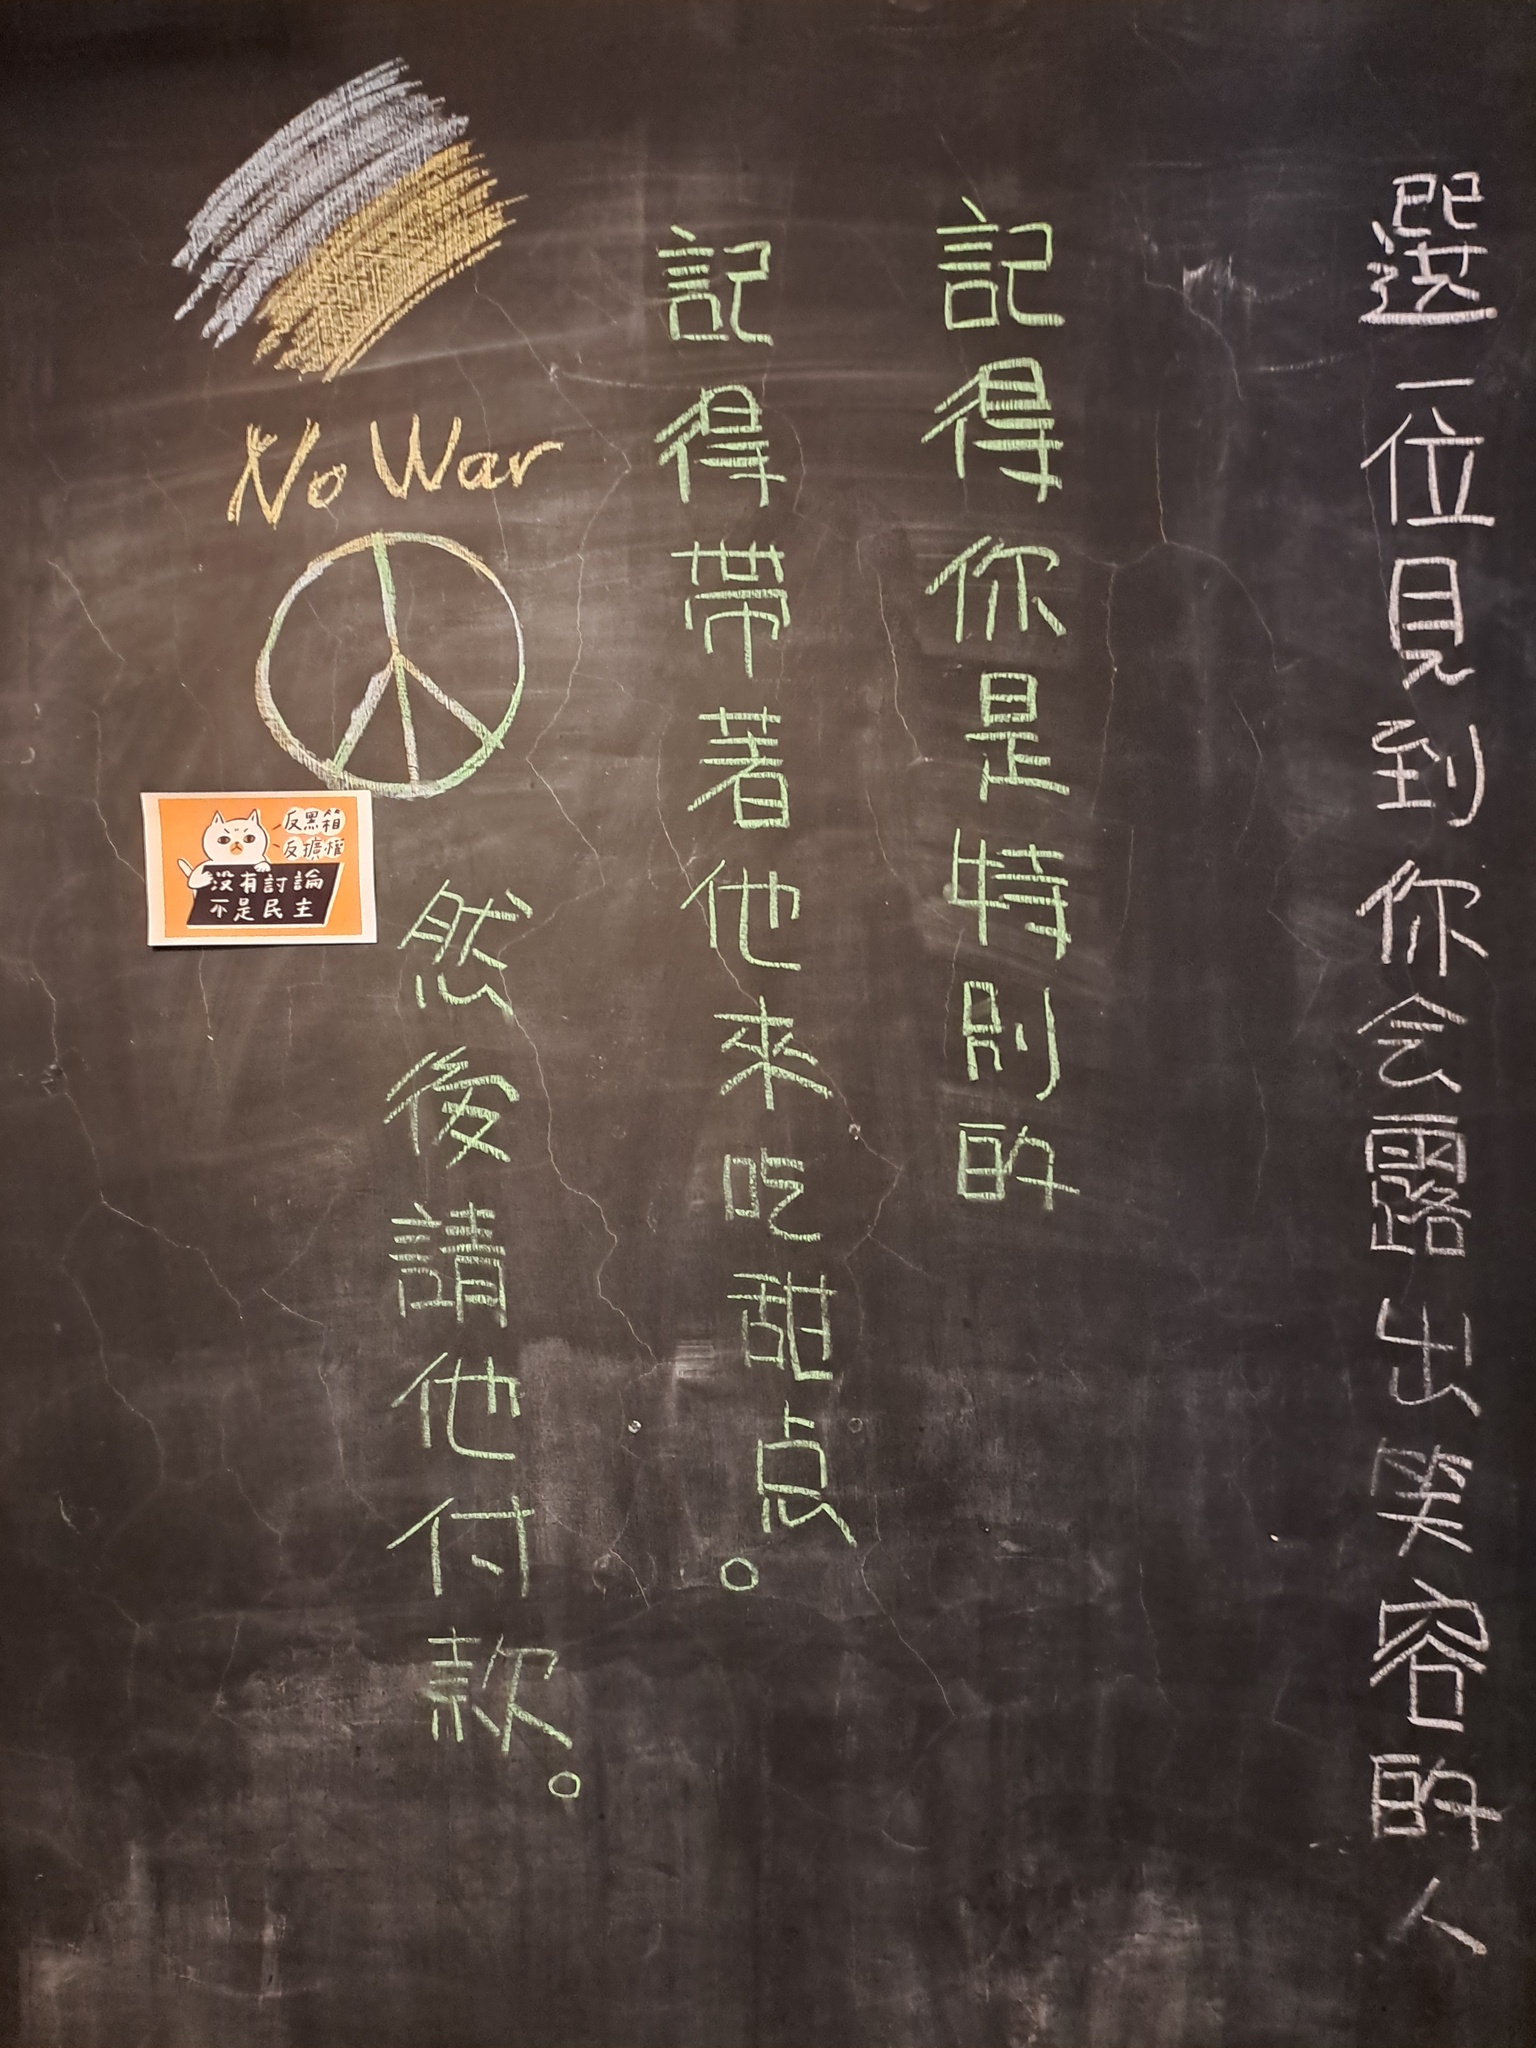 選一位見到你会露出笑容的人
記得你是特別的
記得帶著他來吃甜点。
然後請他付款。
No War
反黑箱
反擴權
沒有討論
不是民主